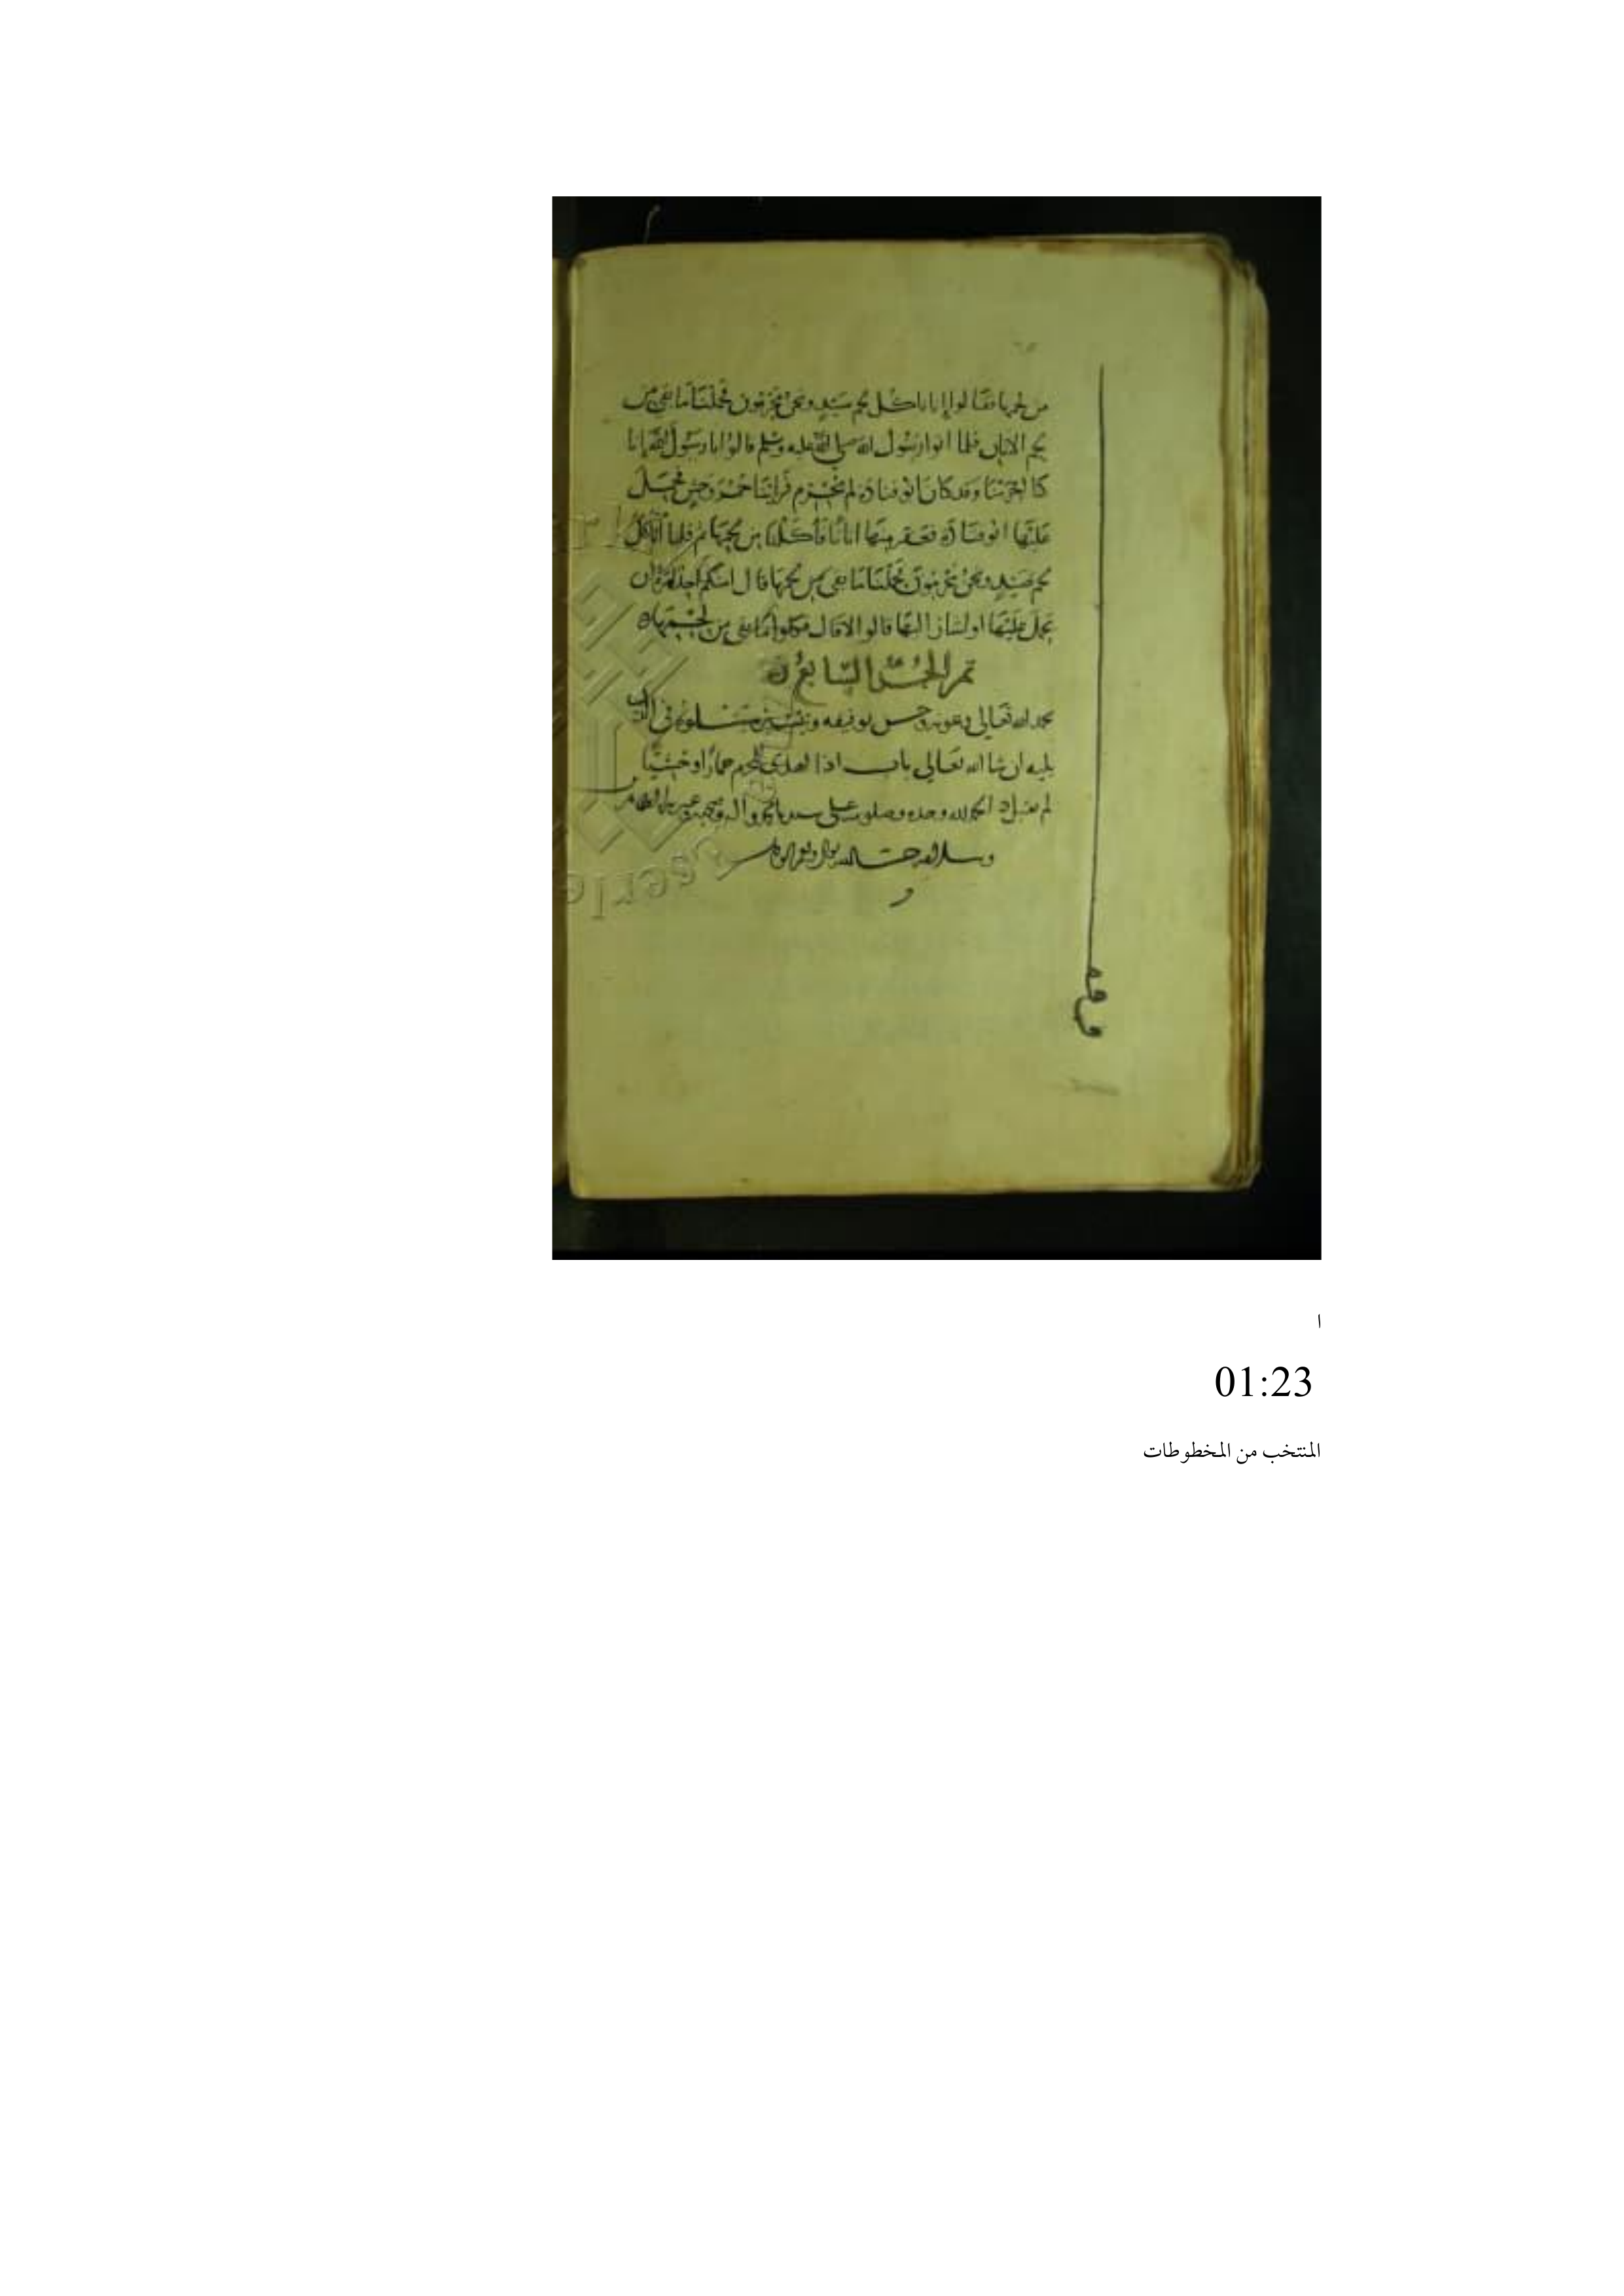 من لحمها فقالوا إنا ناكل لحم صيد ونحن محرمون فحملنا ما بقي من
لحم الاتان فلما اتوا رسول الله صلى الله عليه وسلم قالوا يا رسول الله انا
كنا احرمنا وقد كان ابو قتادة لم يحرم فراينا حمر وحش فحمل
عليها ابو قتادة فعقر منها اتانا فاكلنا من لحمها ثم قلنا اناكل
لحم صيد ونحن محرمون فحملنا ما بقي من لحمها قال امنكم احد امره ان
يحمل عليها او اشار اليها قالوا لا قال فكلوا ما بقي من لحمها
تم الجزء السابع
بحمد الله تعالى وعونه وحسن توفيقه يتلوه في الذي
يليه ان شا الله تعالى باب اذا اهدى للمحرم حمارا وحشيا
لم يقبل الحمد لله وحده وصلوته على سيدنا محمد واله وصحبه
وسلامه حسبنا الله ونعم الوكيل
وقف
ا
01:23
المنتخب من المخطوطات